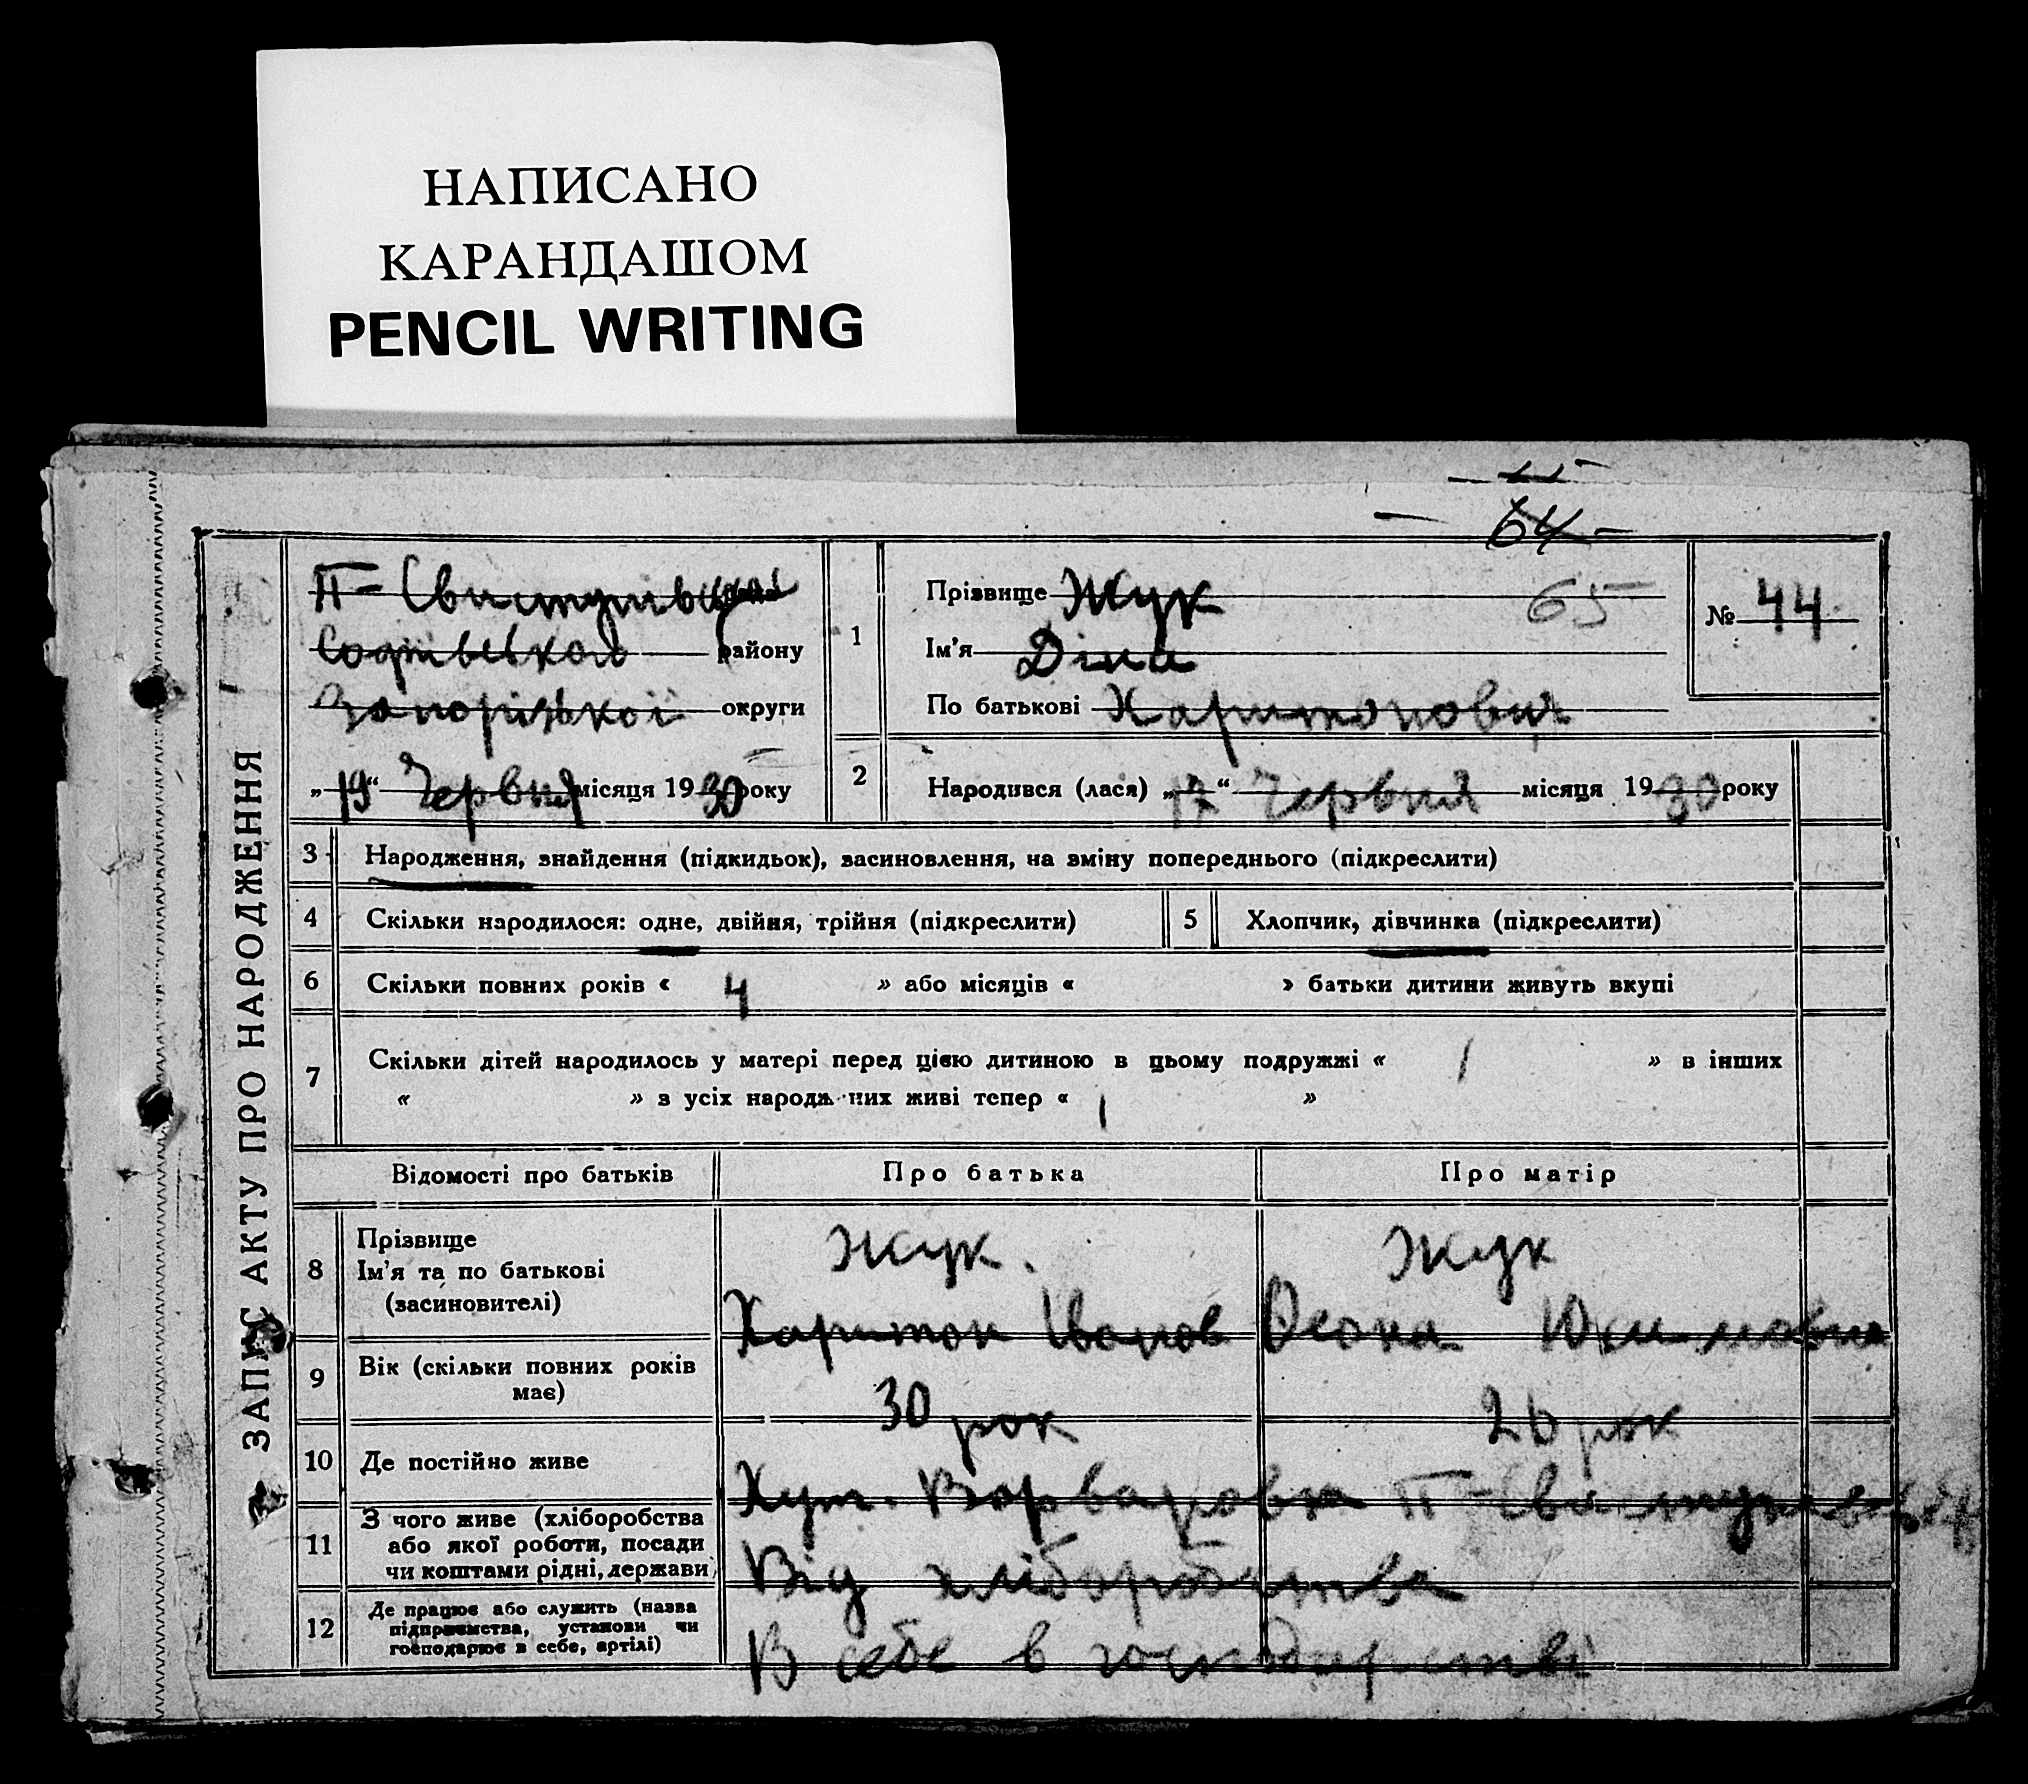 НАПИСАНО
КАРАНДАШОМ
PENCIL WRITING
64
65
ЗАПИС АКТУ ПРО НАРОДЖЕННЯ
П-Свистунівської
району
Запорізької округи
„19“ Червня місяця 1930 року
1
Прізвище Жук
Ім'я Діна
По батькові Харитонович
№ 44
2 Народився (лася) „17“ Червня місяця 1930 року
3 Народження, знайдення (підкидьок), засиновлення, на зміну попереднього (підкреслити)
4 Скільки народилося: одне, двійня, трійня (підкреслити) 5 Хлопчик, дівчинка (підкреслити)
6 Скільки повних років « 4 » або місяців « » батьки дитини живуть вкупі
7 Скільки дітей народилось у матері перед цією дитиною в цьому подружжі « 1 » в інших
« » з усіх народж них живі тепер « 1 »
Відомості про батьків Про батька Про матір
8 Прізвище
Ім'я та по батькові
(засиновителі)
Жук. Жук
Харитон Іванов Юхимовна
9 Вік (скільки повних років
має)
30 рок 26 рок
10 Де постійно живе
Хут. Варваровка П-Свистунівської
11 З чого живе (хліборобства
або якої роботи, посади
чи коштами рідні, держави)
Від хліборобства
12 Де працює або служить (назва
підприємства, установи чи
господарює в себе, артілі)
В себе в господарстві